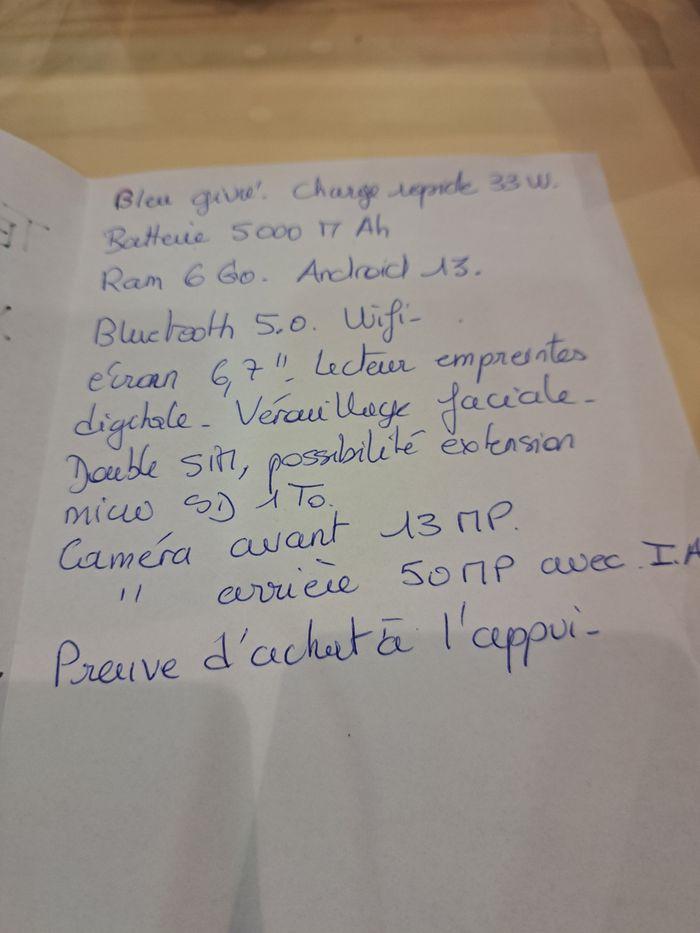 Bleu givré. Charge rapide 33 W.
Batterie 5000 MAh
Ram 6 Go. Android 13.
Bluetooth 5.0. Wifi-
écran 6,7". Lecteur empreintes
digitale - Vérouillage faciale -
Double SIM, possibilité extension
micro SD 1 To.
Caméra avant 13 MP.
" arrière 50 MP avec I.A
Preuve d'achat à l'appui -